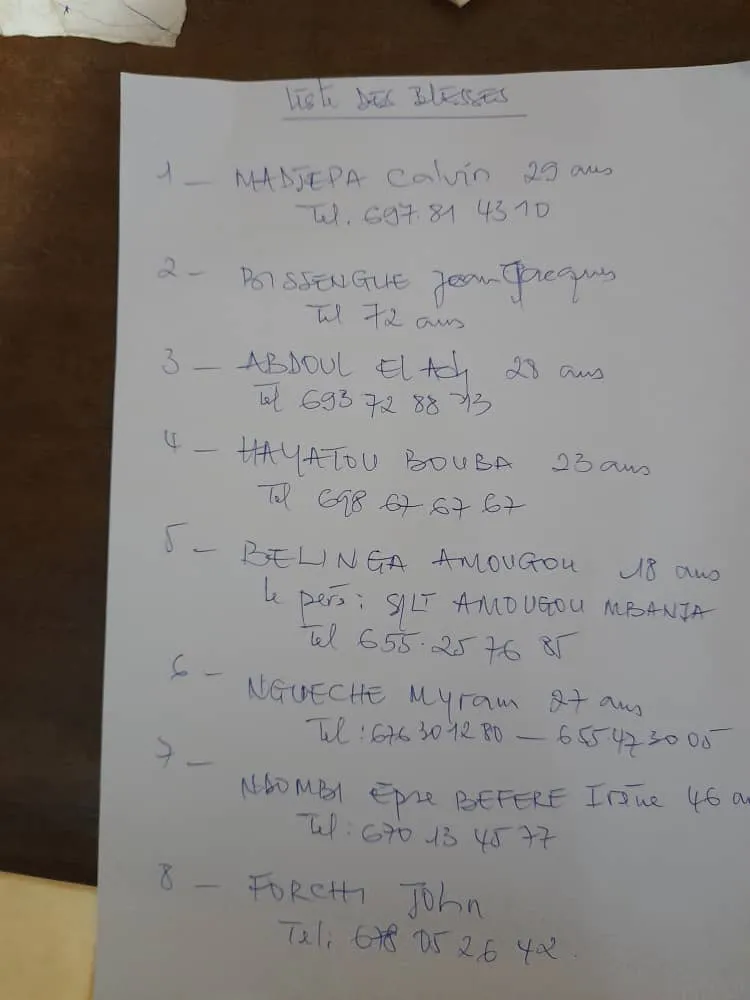 Liste DES BLESSES
1 - MADJEPA Calvin 29 ans
Tel. 697.81 43 10
2 - BISSENGUE Jean Jacques
Tel 72 ans
3 - ABDOUL El Adj 28 ans
Tel 693 72 88
4 - HAYATOU BOUBA 23 ans
Tel 698 67 67 67
5 - BELINGA AMOUGOU 18 ans
le père : S/LT AMOUGOU MBANJA
Tel 655.25 76 85
6 - NGUECHE Myram 27 ans
Tel : 676 30 12 80 — 655 47 30 05
7 -
NDOMBI Epse BEFERE Irène 46 an
Tel : 670 13 45 77
8 - FORCHI John
Tel: 678 05 26 42.